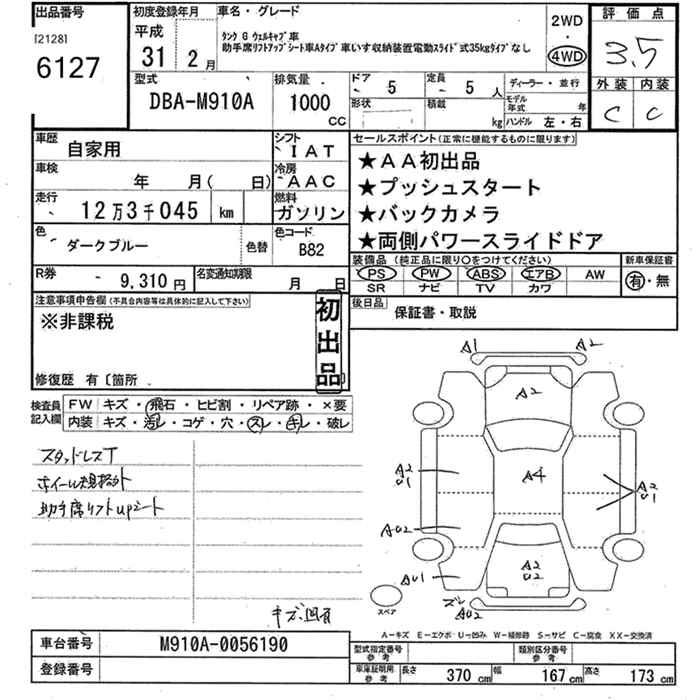 出品番号
[2128]
6127
初度登録年月
平成
31 年 2 月
車名・グレード
タンク G ウェルキャブ車
助手席リフトアップシート車Aタイプ車いす収納装置電動スライド式35kgタイプなし
2WD
・
4WD
評価点
3.5
外装 内装
C C
型式
DBA-M910A
排気量
1000
CC
ドア
5
定員
5 人
ディーラー・並行
形状
積載
kg
モデル年式 年
ハンドル 左・右
車歴
自家用
シフト
IAT
車検
年 月( 日)
冷房
AAC
走行
12万3千045 km
燃料
ガソリン
色
ダークブルー
色替
色コード
B82
R券
9,310 円
名変通知期限
月 日
セールスポイント(正常に機能するものに限ります)
★AA初出品
★プッシュスタート
★バックカメラ
★両側パワースライドドア
装備品 (純正品に限り○をつけてください)
PS PW ABS エアB AW
SR ナビ TV カワ
新車保証書
有・無
後日品
保証書・取説
注意事項申告欄(不具合内容等は具体的に記入して下さい)
※非課税
初出品
修復歴 有〔箇所
検査員記入欄
FW キズ・飛石・ヒビ割・リペア跡・×要
内装 キズ・汚レ・コゲ・穴・スレ・キレ・破レ
スタッドレスT
助手席リフトupシート
A1 A2
A2
A2
U1
A4
A2
U1
A02
A01
A2
02
ズレ
A02
スペア
A-キズ E-エクボ U-凹み W-補修跡 S-サビ C-腐食 XX-交換済
車台番号
M910A-0056190
登録番号
型式指定番号
参考
類別区分番号
参考
車庫証明用
参考
長さ 370 cm 幅 167 cm 高さ 173 cm